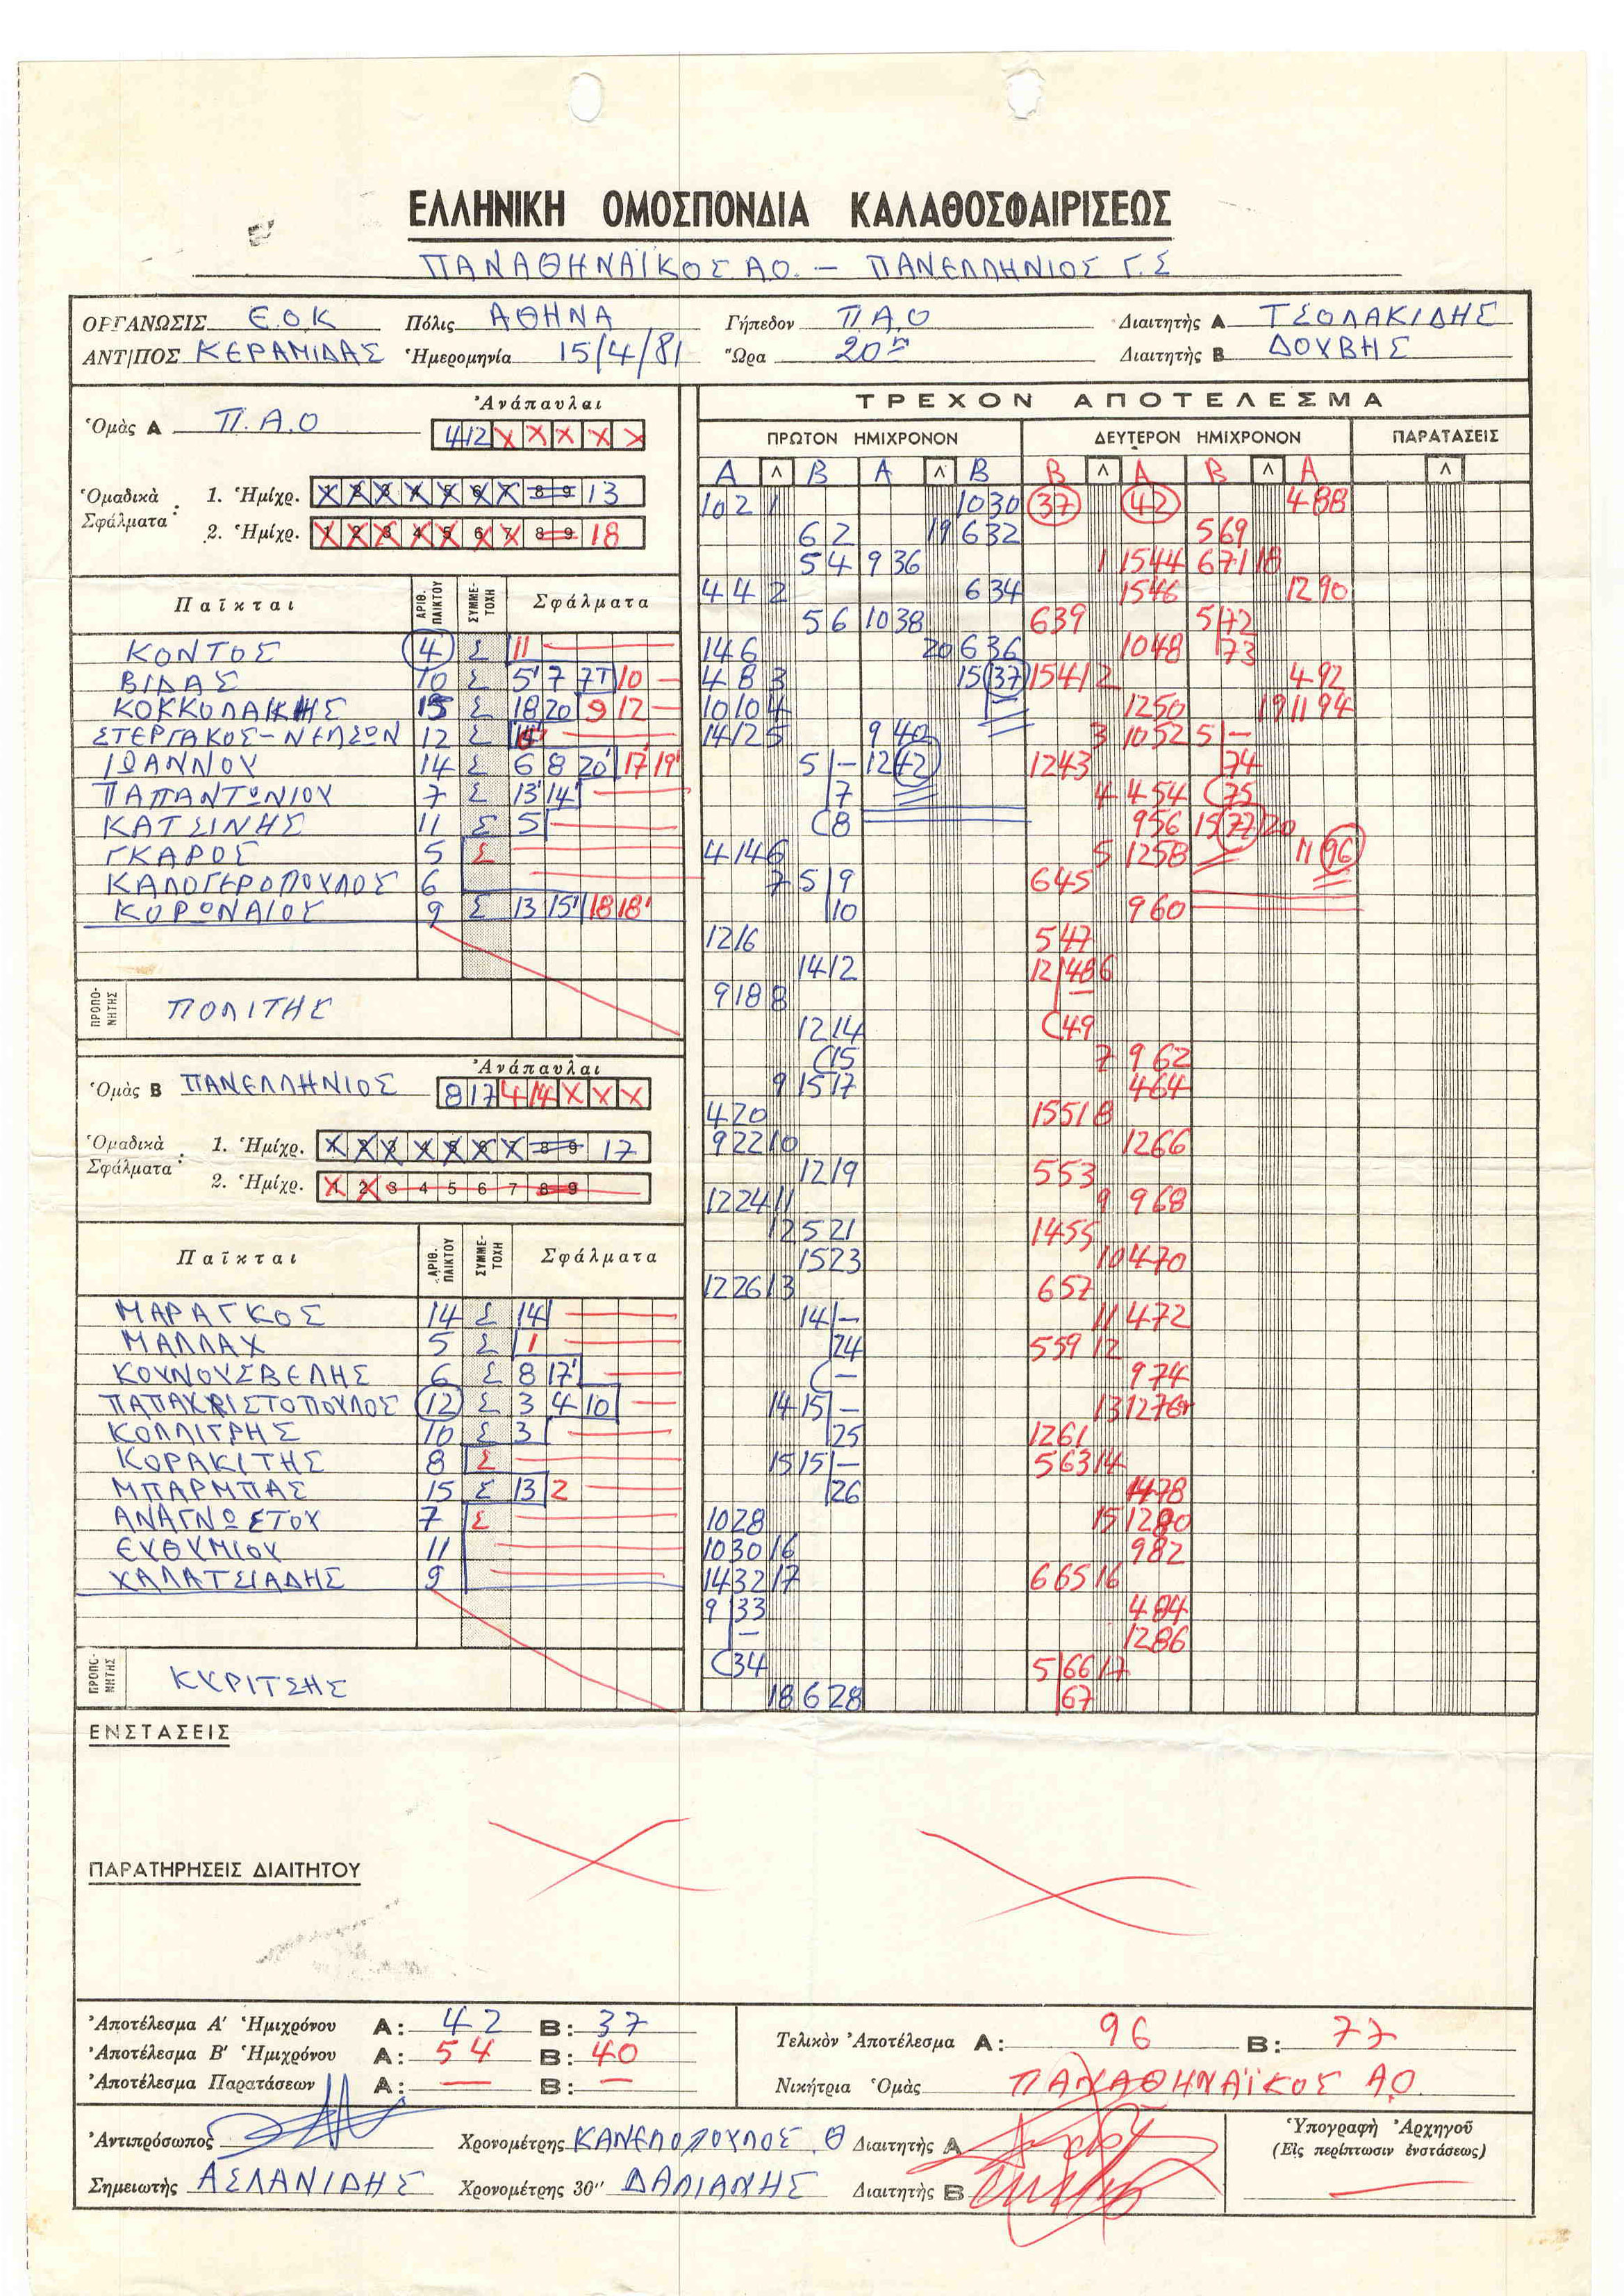 ΕΛΛΗΝΙΚΗ ΟΜΟΣΠΟΝΔΙΑ ΚΑΛΑΘΟΣΦΑΙΡΙΣΕΩΣ
ΠΑΝΑΘΗΝΑΪΚΟΣ Α.Ο. – ΠΑΝΕΛΛΗΝΙΟΣ Γ.Σ
ΟΡΓΑΝΩΣΙΣ Ε.Ο.Κ Πόλις ΑΘΗΝΑ Γήπεδον Π.Α.Ο Διαιτητὴς Α ΤΣΟΛΑΚΙΔΗΣ
ΑΝΤ/ΠΟΣ ΚΕΡΑΜΙΔΑΣ Ἡμερομηνία 15/4/81 Ὥρα 20 Διαιτητὴς Β ΔΟΥΒΗΣ
Ὁμὰς Α Π.Α.Ο Ἀνάπαυλαι
4 12 X X X X X
Ὁμαδικὰ Σφάλματα :
1. Ἡμίχρ. 1 2 3 4 5 6 7 8 9 13
2. Ἡμίχρ. 1 2 3 4 5 6 7 8 9 18
Παῖκται ΑΡΙΘ. ΠΑΙΚΤΟΥ ΣΥΜΜΕΤΟΧΗ Σφάλματα
ΚΟΝΤΟΣ 4 Σ 11
ΒΙΔΑΣ 10 Σ 5' 7 7Τ 10
ΚΟΚΚΟΛΑΚΗΣ 15 Σ 18 20 9 12
ΣΤΕΡΓΑΚΟΣ-ΝΕΛΣΩΝ 12 Σ
ΙΩΑΝΝΟΥ 14 Σ 6 8 20' 17' 19'
ΠΑΠΑΝΤΩΝΙΟΥ 7 Σ 13' 14'
ΚΑΤΣΙΝΗΣ 11 Σ 5
ΓΚΑΡΟΣ 5 Σ
ΚΑΛΟΓΕΡΟΠΟΥΛΟΣ 6
ΚΟΡΩΝΑΙΟΥ 9 Σ 13 15' 18 18'
ΠΡΟΠΟΝΗΤΗΣ ΠΟΛΙΤΗΣ
Ὁμὰς Β ΠΑΝΕΛΛΗΝΙΟΣ Ἀνάπαυλαι
8 17 4 14 X X X
Ὁμαδικὰ Σφάλματα :
1. Ἡμίχρ. 1 2 3 4 5 6 7 8 9 17
2. Ἡμίχρ. 1 2 3 4 5 6 7 8 9
Παῖκται ΑΡΙΘ. ΠΑΙΚΤΟΥ ΣΥΜΜΕΤΟΧΗ Σφάλματα
ΜΑΡΑΓΚΟΣ 14 Σ 14
ΜΑΛΛΑΧ 5 Σ 1
ΚΟΥΝΟΥΣΒΕΛΗΣ 6 Σ 8 17'
ΠΑΠΑΧΡΙΣΤΟΠΟΥΛΟΣ 12 Σ 3 4 10
ΚΟΛΛΙΓΡΗΣ 10 Σ 3
ΚΟΡΑΚΙΤΗΣ 8 Σ
ΜΠΑΡΜΠΑΣ 15 Σ 13 2
ΑΝΑΓΝΩΣΤΟΥ 7 Σ
ΕΥΘΥΜΙΟΥ 11
ΧΑΛΑΤΣΙΑΔΗΣ 9
ΠΡΟΠΟΝΗΤΗΣ ΚΥΡΙΤΣΗΣ
ΤΡΕΧΟΝ ΑΠΟΤΕΛΕΣΜΑ
ΠΡΩΤΟΝ ΗΜΙΧΡΟΝΟΝ ΔΕΥΤΕΡΟΝ ΗΜΙΧΡΟΝΟΝ ΠΑΡΑΤΑΣΕΙΣ
Α Λ Β Α Λ Β Β Λ Α Β Λ Α Λ
10 2 1 10 30 37 42 4 88
6 2 19 6 32 5 69
5 4 9 36 1 15 44 6 71 18
4 4 2 6 34 15 46 12 90
5 6 10 38 6 39 5 72
14 6 20 6 36 10 48 73
4 8 3 15 37 15 41 2 4 92
10 10 4 12 50 19 11 94
14 12 5 9 40 3 10 52 5 –
5 – 12 42 12 43 74
7 4 4 54 C 75
C 8 9 56 15 77 20
4 14 6 5 12 58 11 96
7 5 9 6 45
10 9 60
12 16 5 47
14 12 12 48 6
9 18 8 –
12 14 C 49
C 15 7 9 62
9 15 17 4 64
4 20 15 51 8
9 22 10 12 66
12 19 5 53
12 24 11 9 9 68
12 5 21 14 55
15 23 10 4 70
12 26 13 6 57
14 – 11 4 72
24 5 59 12
C – 9 74
14 15 – 13 12 76
25 12 61
15 15 – 5 63 14
26 78
10 28 15 12 80
10 30 16 9 82
14 32 17 6 65 16
9 33 4 84
– 12 86
C 34 5 66 17
18 6 28 67
ΕΝΣΤΑΣΕΙΣ
ΠΑΡΑΤΗΡΗΣΕΙΣ ΔΙΑΙΤΗΤΟΥ
Ἀποτέλεσμα Α' Ἡμιχρόνου Α: 42 Β: 37
Ἀποτέλεσμα Β' Ἡμιχρόνου Α: 54 Β: 40
Ἀποτέλεσμα Παρατάσεων Α: — Β: —
Τελικὸν Ἀποτέλεσμα Α: 96 Β: 77
Νικήτρια Ὁμὰς ΠΑΝΑΘΗΝΑΪΚΟΣ Α.Ο.
Ἀντιπρόσωπος Χρονομέτρης ΚΑΝΕΛΟΠΟΥΛΟΣ Θ Διαιτητὴς Α
Σημειωτὴς ΑΣΛΑΝΙΔΗΣ Χρονομέτρης 30" ΔΑΛΙΑΝΗΣ Διαιτητὴς Β
Ὑπογραφὴ Ἀρχηγοῦ
(Εἰς περίπτωσιν ἐνστάσεως)